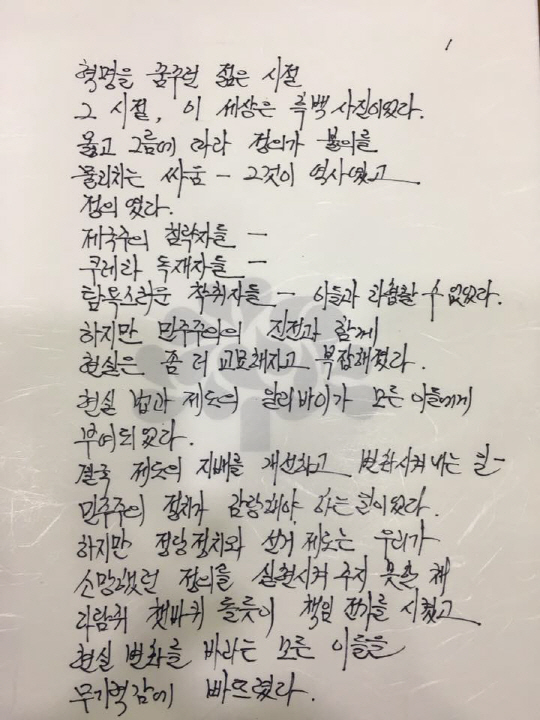 1
혁명을 꿈꾸던 젊은 시절
그 시절, 이 세상은 흑백사진이었다.
옳고 그름에 따라 정의가 불의를
물리치는 싸움 - 그것이 역사였고
정의였다.
제국주의 침략자들 -
쿠데타 독재자들 -
탐욕스러운 착취자들 - 이들과 타협할 수 없었다.
하지만 민주주의의 진전과 함께
현실은 좀 더 교묘해지고 복잡해졌다.
현실 법과 제도의 알리바이가 모든 이들에게
부여되었다.
결국 제도의 지배를 개선하고 변화시켜 내는 일-
민주주의 정치가 감당해야 하는 일이었다.
하지만 정당정치와 선거 제도는 우리가
소망했던 정의를 실현시켜 주지 못한 채
다람쥐 쳇바퀴 돌듯이 책임 전가를 시켰고
현실 변화를 바라는 모든 이들을
무기력감에 빠뜨렸다.